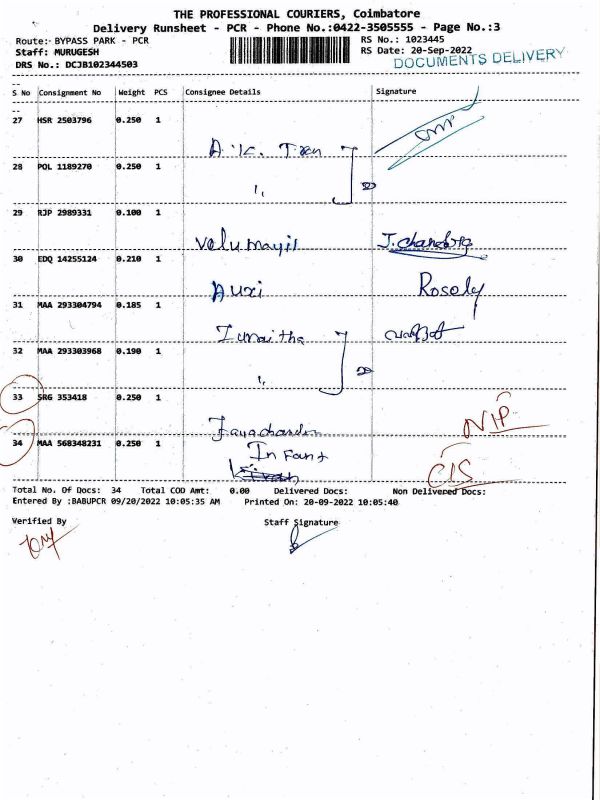 THE PROFESSIONAL COURIERS, Coimbatore
Delivery Runsheet - PCR - Phone No.:0422-3505555 - Page No.:3
Route:- BYPASS PARK - PCR RS No.: 1023445
Staff: MURUGESH RS Date: 20-Sep-2022
DRS No.: DCJB102344503 DOCUMENTS DELIVERY
S No Consignment No Weight PCS Consignee Details Signature
27 HSR 2503796 0.250 1
A.K.
28 POL 1189270 0.250 1
"
29 RJP 2989331 0.100 1
Velumayil J.chandra
30 EDQ 14255124 0.210 1
Auxi Rosely
31 MAA 293304794 0.185 1
32 MAA 293303968 0.190 1
"
33 SRG 353418 0.250 1
Jayachandran NIP
34 MAA 568348231 0.250 1
Infant
CIS
Total No. Of Docs: 34 Total COD Amt: 0.00 Delivered Docs: Non Delivered Docs:
Entered By :BABUPCR 09/20/2022 10:05:35 AM Printed On: 20-09-2022 10:05:40
Verified By Staff Signature